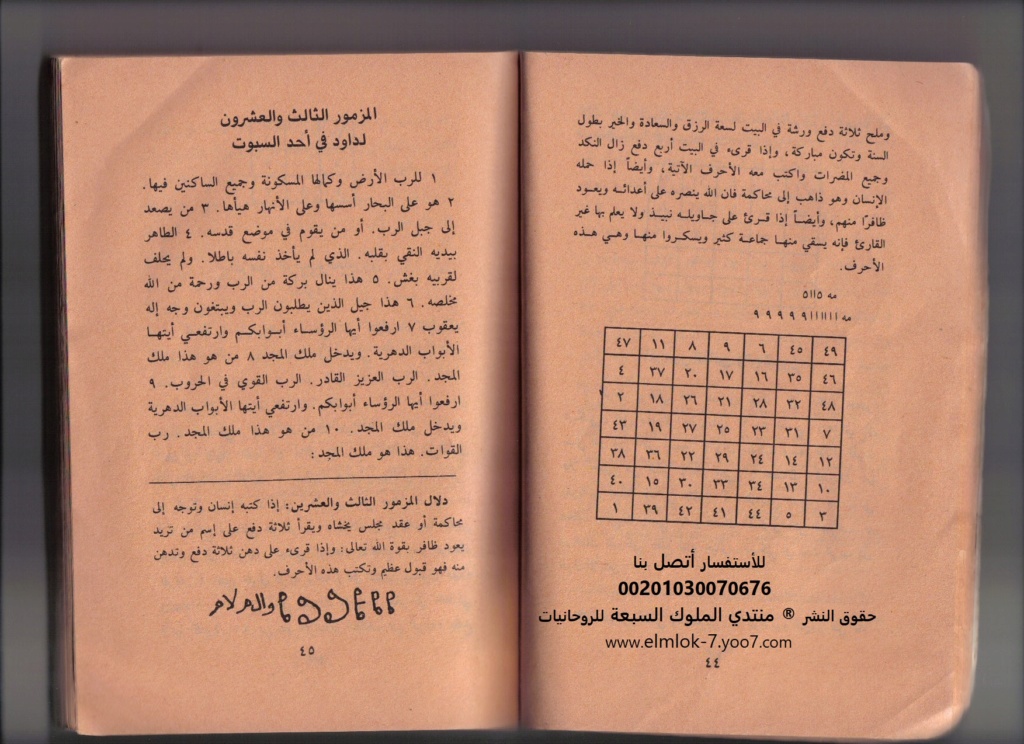 وملح ثلاثة دفع ورشة في البيت لسعة الرزق والسعادة والخير بطول
السنة وتكون مباركة، وإذا قرىء في البيت أربع دفع زال النكد
وجميع المضرات واكتب معه الأحرف الآتية، وأيضاً إذا حمله
الإنسان وهو ذاهب إلى محاكمة فان الله ينصره على أعدائه ويعود
ظافرًا منهم، وأيضاً إذا قرئ على جاويله نبيذ ولا يعلم بها غير
القارئ فإنه يسقي منها جماعة كثير ويسكروا منها وهي هذه
الأحرف.
مه ٥١١٥
مه ١١١١١١ ٩ ٩ ٩ ٩ ٩
٤٧ ١١ ٨ ٩ ٦ ٤٥ ٤٩
٤ ٣٧ ٢٠ ١٧ ١٦ ٣٥ ٤٦
٢ ١٨ ٢٦ ٢١ ٢٨ ٣٢ ٤٨
٤٣ ١٩ ٢٧ ٢٥ ٢٣ ٣١ ٧
٣٨ ٣٦ ٢٢ ٢٩ ٢٤ ١٤ ١٢
٤٠ ١٥ ٣٠ ٣٣ ٣٤ ١٣ ١٠
١ ٣٩ ٤٢ ٤١ ٤٤ ٥ ٣
للأستفسار أتصل بنا
00201030070676
حقوق النشر ® منتدي الملوك السبعة للروحانيات
www.elmlok-7.yoo7.com
٤٤
المزمور الثالث والعشرون
لداود في أحد السبوت
١ للرب الأرض وكمالها المسكونة وجميع الساكنين فيها.
٢ هو على البحار أسسها وعلى الأنهار هيأها. ٣ من يصعد
إلى جبل الرب. أو من يقوم في موضع قدسه. ٤ الطاهر
بيديه النقي بقلبه. الذي لم يأخذ نفسه باطلا. ولم يحلف
لقريبه بغش. ٥ هذا ينال بركة من الرب ورحمة من الله
مخلصه. ٦ هذا جيل الذين يطلبون الرب ويبتغون وجه إله
يعقوب ٧ ارفعوا أيها الرؤساء أبوابكم وارتفعي أيتها
الأبواب الدهرية. ويدخل ملك المجد ٨ من هو هذا ملك
المجد. الرب العزيز القادر. الرب القوي في الحروب. ٩
ارفعوا أيها الرؤساء أبوابكم. وارتفعي أيتها الأبواب الدهرية
ويدخل ملك المجد. ١٠ من هو هذا ملك المجد. رب
القوات. هذا هو ملك المجد:
دلال المزمور الثالث والعشرين: إذا كتبه إنسان وتوجه إلى
محاكمة أو عقد مجلس يخشاه ويقرأ ثلاثة دفع على إسم من تريد
يعود ظافر بقوة الله تعالى: وإذا قرىء على دهن ثلاثة دفع وتدهن
منه فهو قبول عظيم وتكتب هذه الأحرف.
٤٥